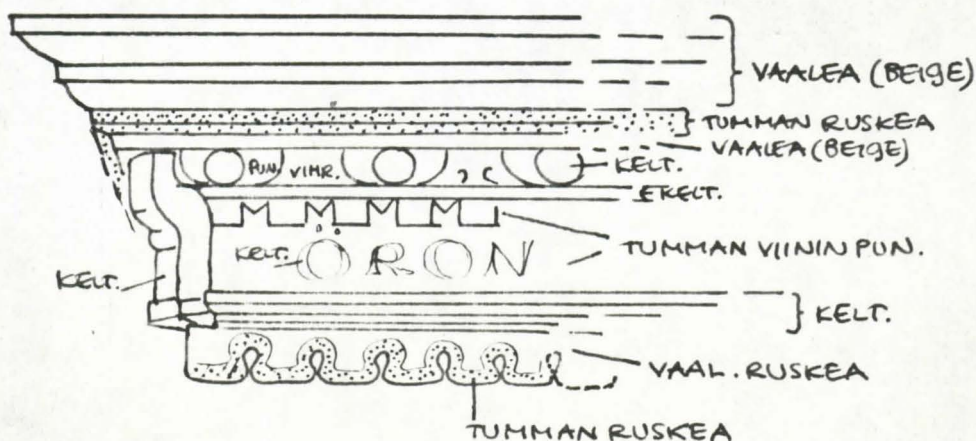 VAALEA (BEIGE)
TUMMAN RUSKEA
VAALEA (BEIGE)
PUN. VIHR.
KELT.
KELT.
TUMMAN VIININ PUN.
KELT.
ÖRON
KELT.
KELT.
VAAL. RUSKEA
TUMMAN RUSKEA